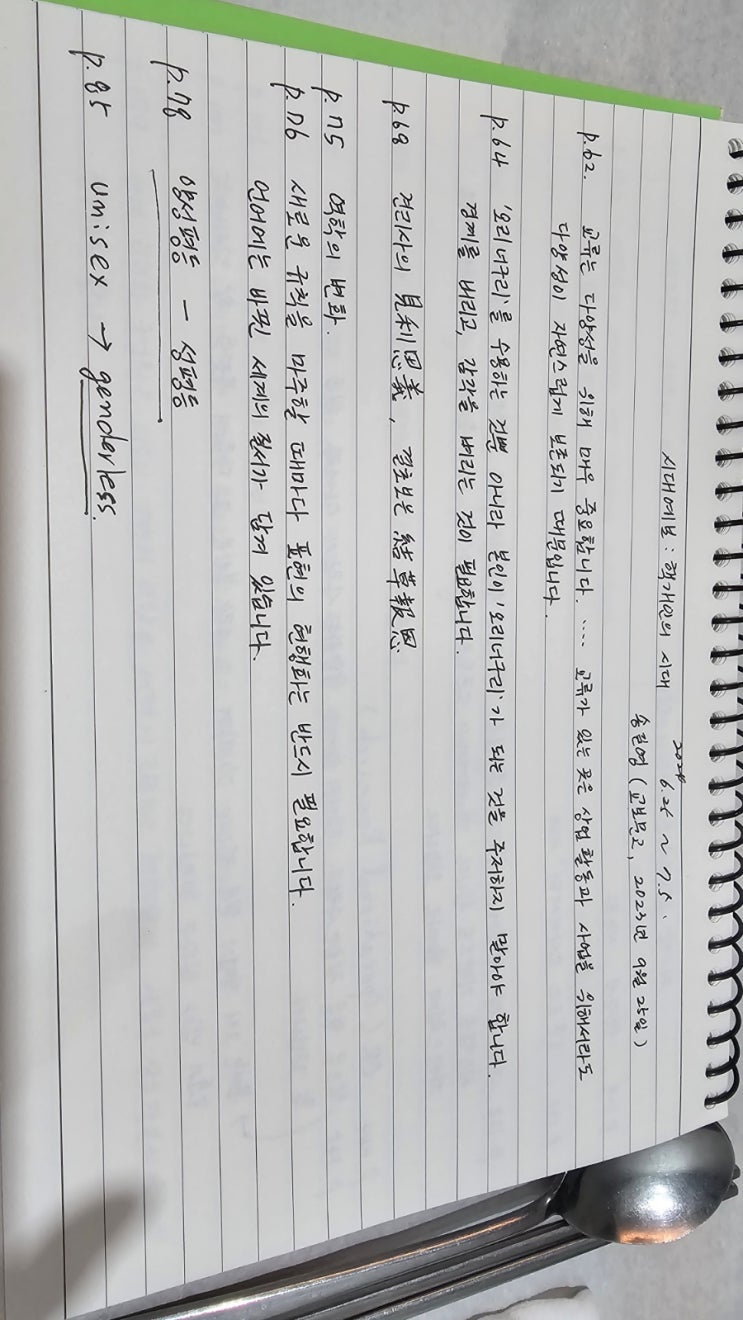 시대예보 : 핵개인의 시대
2024 6.26 ~ 7.5.
송길영 (교보문고, 2023년 9월 25일)
p.62. 교류는 다양성을 위해 매우 중요합니다. ···· 교류가 있는 곳은 상업 활동과 사업을 위해서라도
다양성이 자연스럽게 보존되기 때문입니다.
p.64 '오리너구리'를 수용하는 것뿐 아니라 본인이 '오리너구리'가 되는 것을 주저하지 말아야 합니다.
경계를 버리고, 감각을 벼리는 것이 필요합니다.
p.68 견리사의 見利思義, 결초보은 結草報恩
p.75 역학의 변화.
p.76 새로운 규칙을 마주할 때마다 표현의 현행화는 반드시 필요합니다.
언어에는 바뀐 세계의 질서가 담겨 있습니다.
p.78 양성평등 — 성평등
p.85 unisex → genderless.